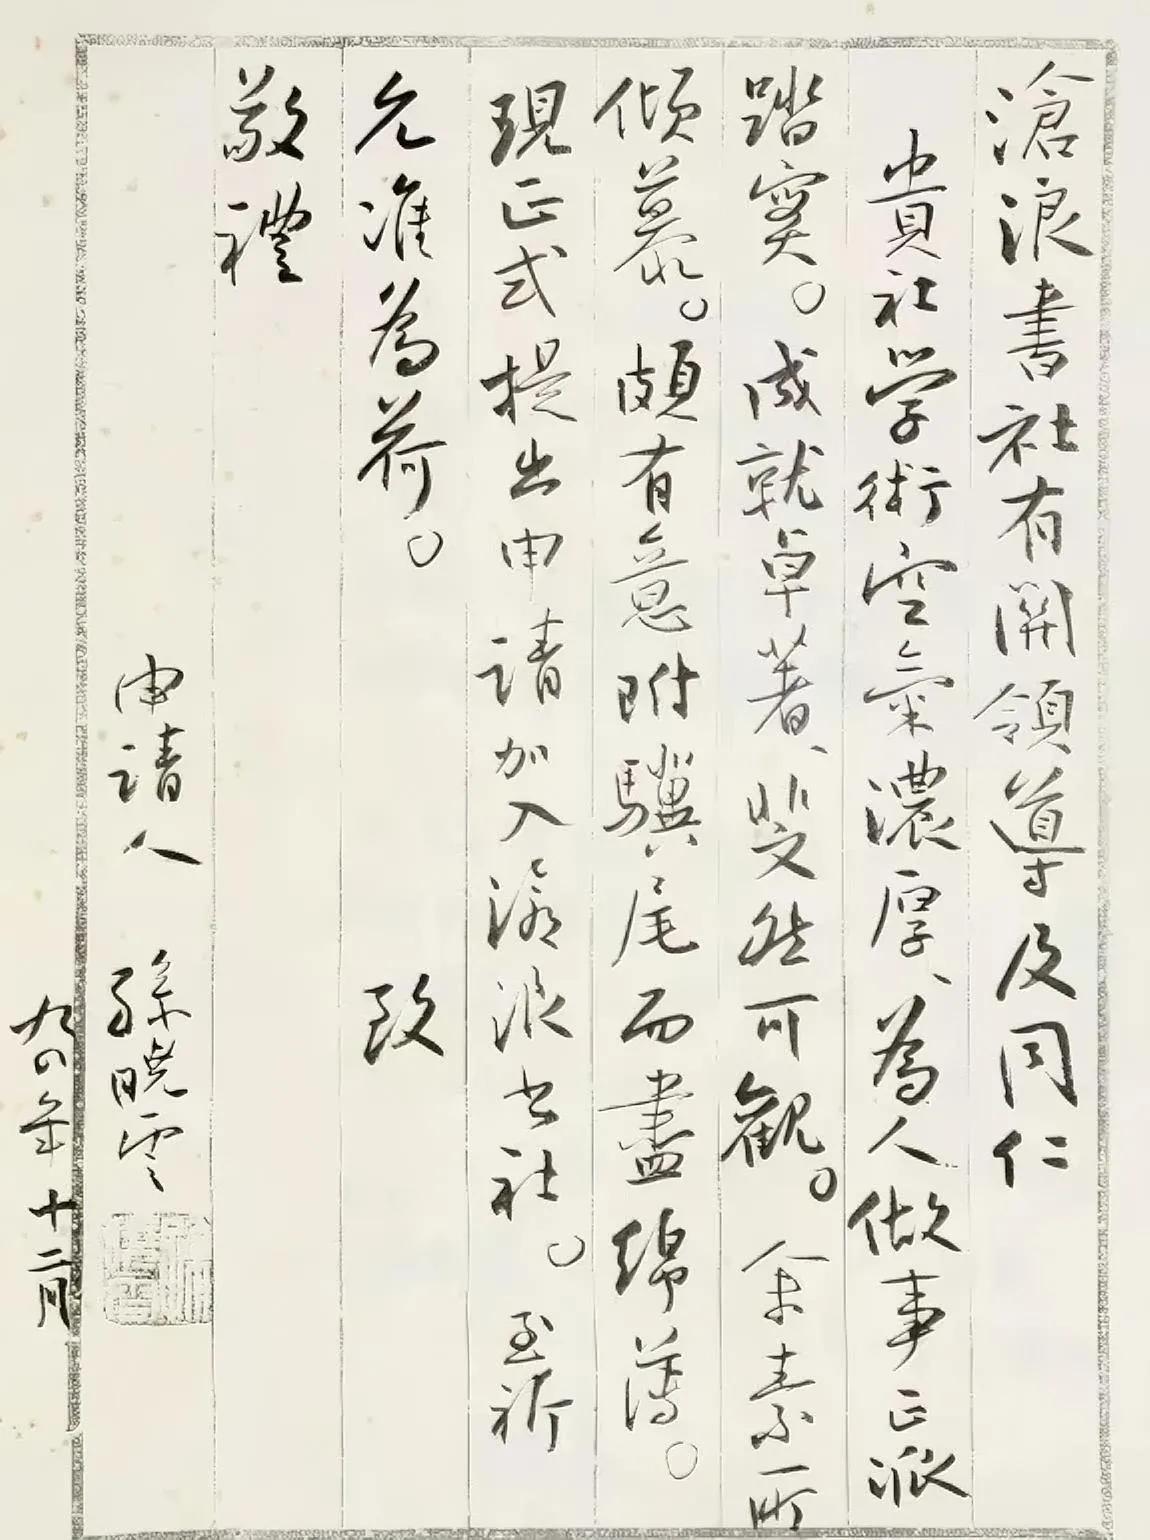 滄浪書社有關領導及同仁
貴社学術空氣濃厚、為人做事正派
踏實。成就卓著、斐然可觀。余素所
傾慕。頗有意附驥尾而盡綿薄。
現正式提出申請加入滄浪书社。至祈
允准為荷。 致
敬禮
申請人 孫曉雲
九四年十二月